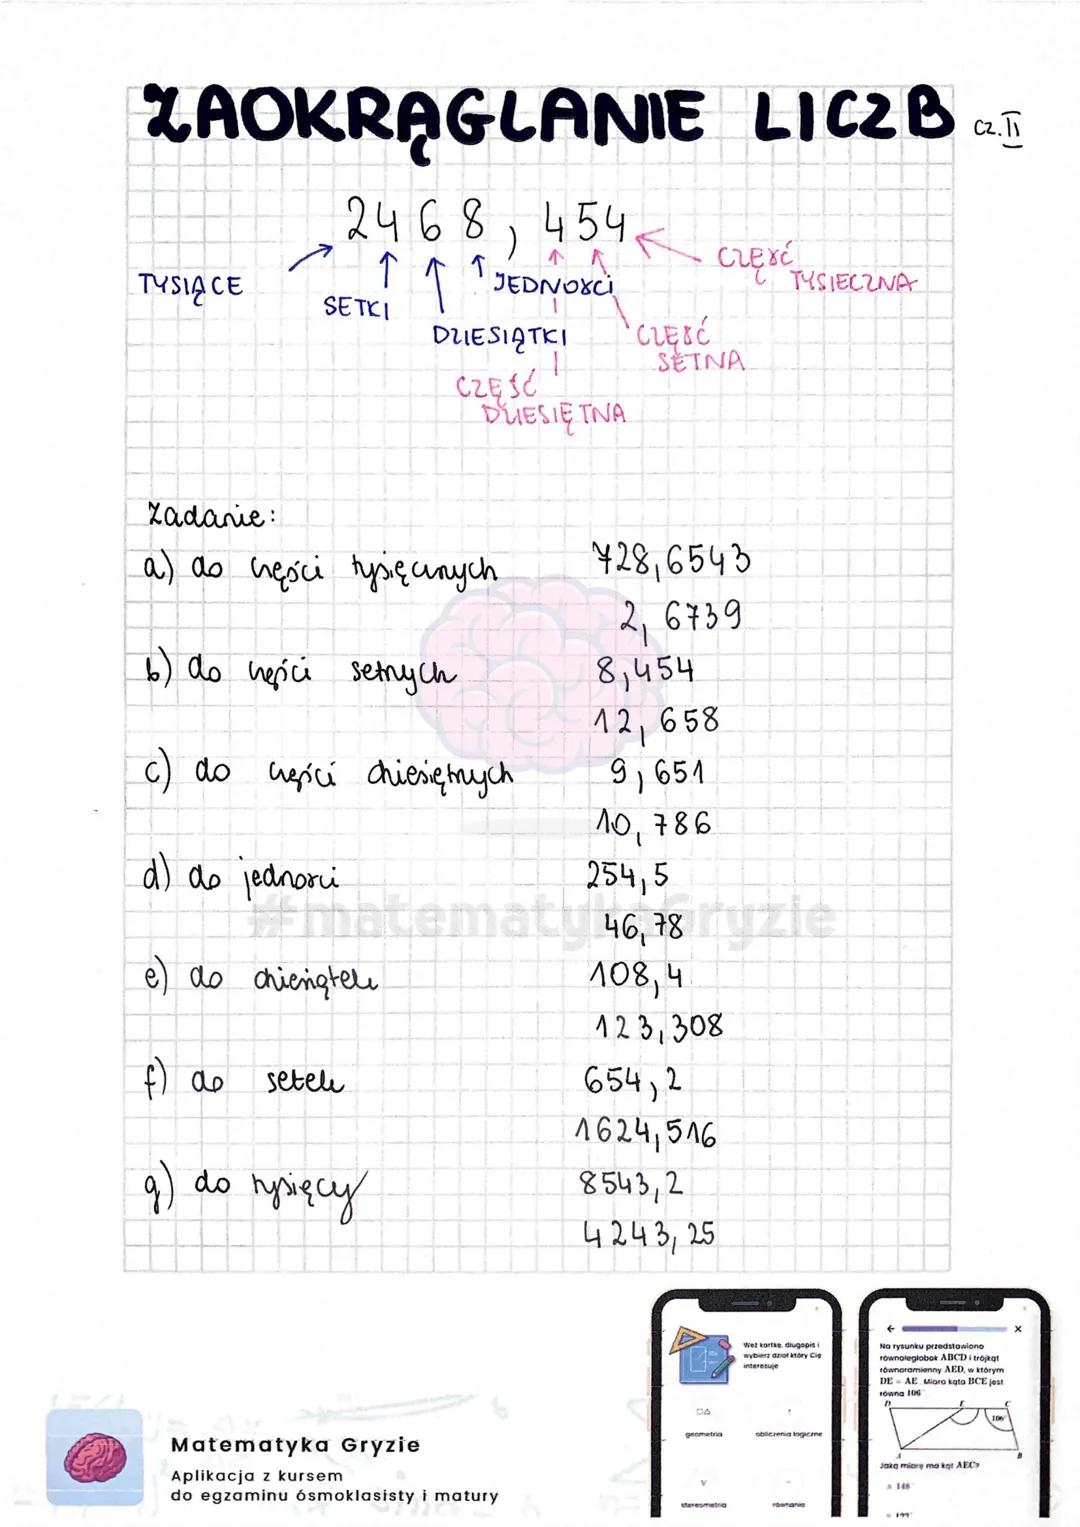 ZAOKRĄGLANIE LICZB cz.II
2468,454
TYSIĄCE
SETKI
DZIESIĄTKI
JEDNOŚCI
CZĘŚĆ DZIESIĘTNA
CZĘŚĆ SETNA
CZĘŚĆ TYSIĘCZNA
Zadanie:
a) do części tysięcznych 728,6543
2,6739
b) do części setnych 8,454
12,658
c) do części dziesiętnych 9,651
10,786
d) do jedności 254,5
#matematykaGryzie
46,78
e) do dziesiątek 108,4
123,308
f) do setek 654,2
1624,516
g) do tysięcy 8543,2
4243,25
Weź kartkę, długopis i
wybierz dział który Cię
interesuje
geometria
obliczenia logiczne
stereometria
równania
Na rysunku przedstawiono
równoległobok ABCD i trójkąt
równoramienny AED, w którym
DE = AE. Miara kąta BCE jest
równa 106°
D E C
106°
A B
Jaką miarę ma kąt AEC?
A 148°
Matematyka Gryzie
Aplikacja z kursem
do egzaminu ósmoklasisty i matury